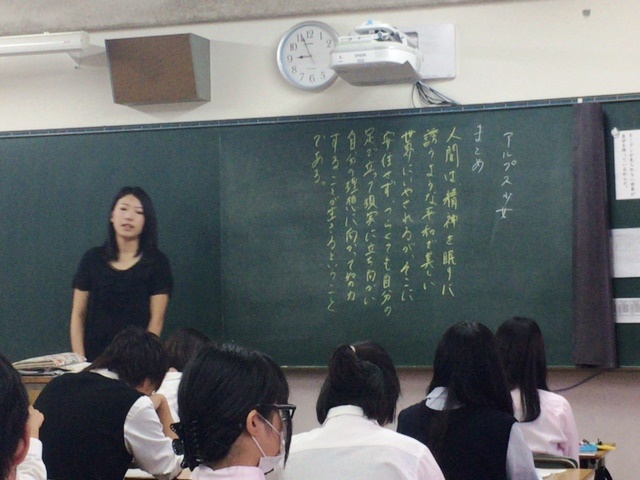 アルプス少女
まとめ
人間は、精神を眠りに
誘うような平和で美しい
世界にいやされるが、そこに
安住せず、つらくても自分の
足で立つ現実に立ち向かい
自分の理想に向かって努力
することが生きるということ
である。